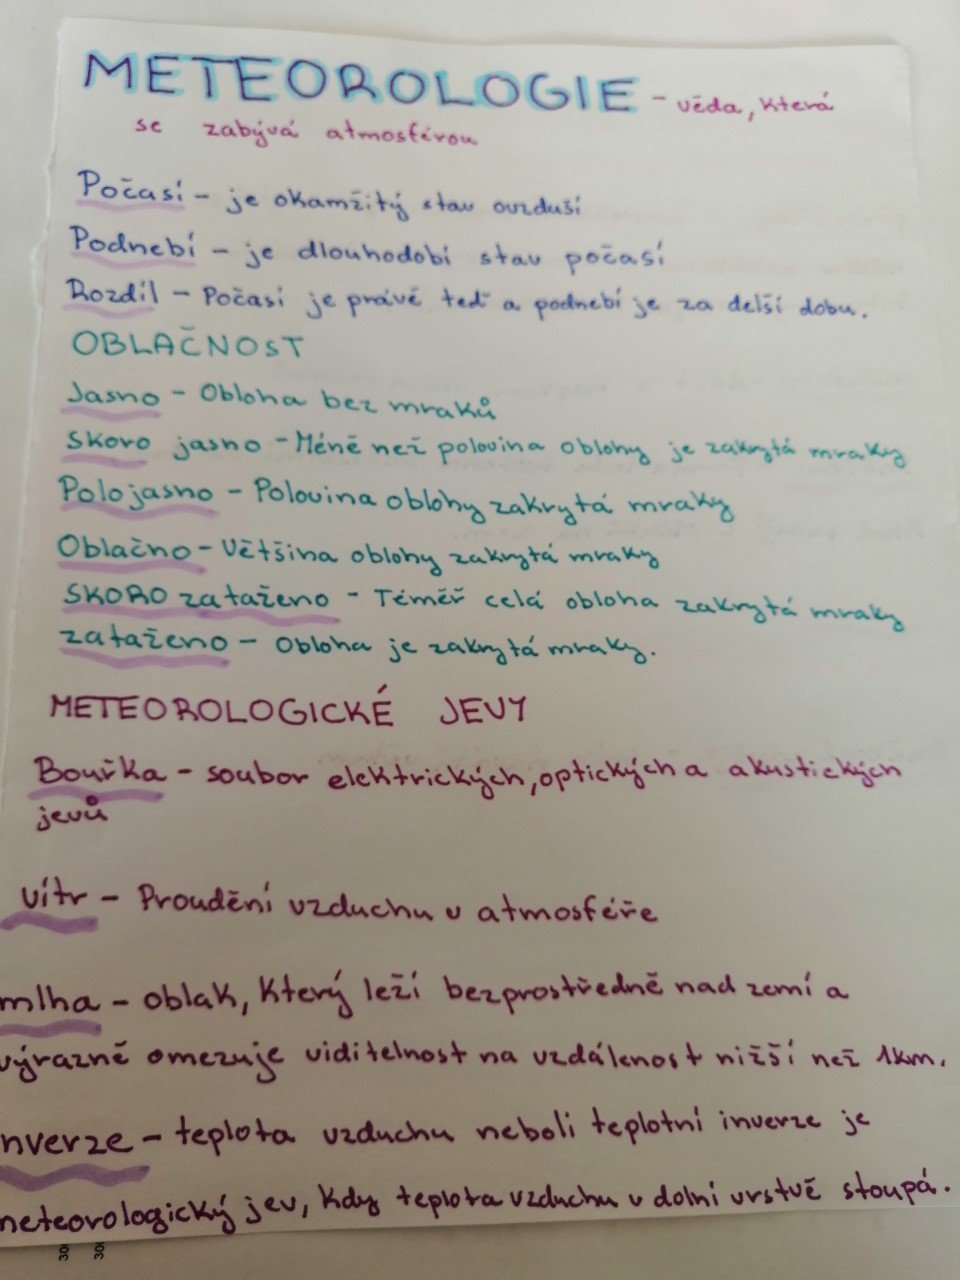 METEOROLOGIE - věda, která
se zabývá atmosférou
Počasí - je okamžitý stav ovzduší
Podnebí - je dlouhodobí stav počasí
Rozdíl - Počasí je právě teď a podnebí je za delší dobu.
OBLAČNOST
Jasno - Obloha bez mraků
Skoro jasno - Méně než polovina oblohy je zakrytá mraky
Polojasno - Polovina oblohy zakrytá mraky
Oblačno - Většina oblohy zakrytá mraky
SKORO zataženo - Téměř celá obloha zakrytá mraky
zataženo - Obloha je zakrytá mraky.
METEOROLOGICKÉ JEVY
Bouřka - soubor elektrických, optických a akustických
jevů
vítr - Proudění vzduchu v atmosféře
mlha - oblak, který leží bezprostředně nad zemí a
výrazně omezuje viditelnost na vzdálenost nižší než 1km.
nverze - teplota vzduchu neboli teplotní inverze je
meteorologický jev, kdy teplota vzduchu v dolní vrstvě stoupá.